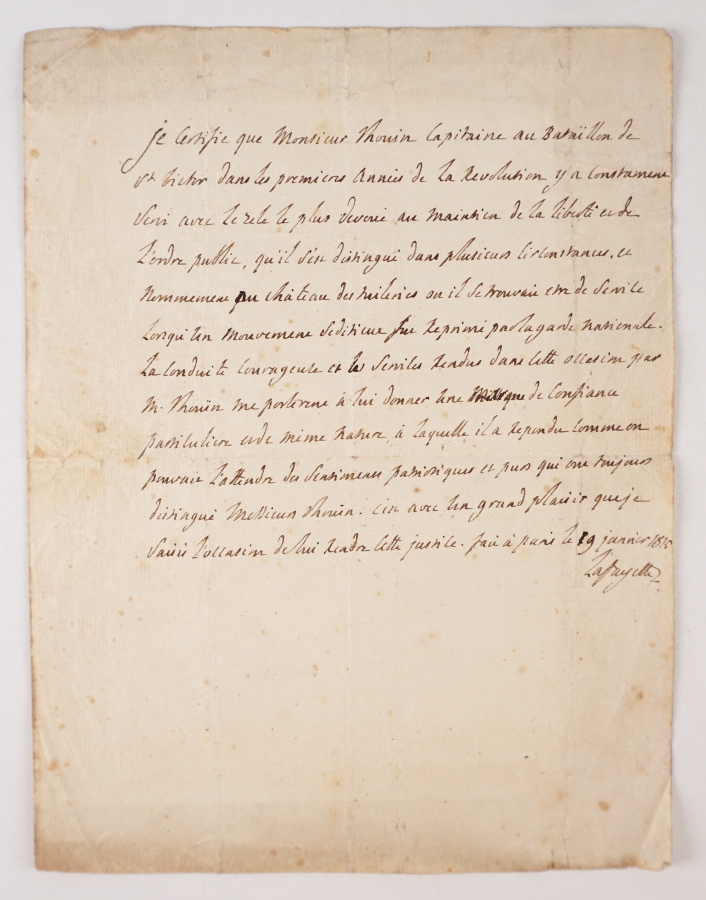 je certifie que Monsieur Thouin Capitaine au Bataillon de
St Victor dans les premieres Années de La Revolution y a constament
Servi avec le zele le plus devoué au maintien de la liberté et de
L'ordre public, qu'il s'est distingué dans plusieurs Circonstances, et
Nommement au château des tuileries ou il se trouvait etre de Service
Lorsqu'un mouvement seditieux fut Reprimé par la garde nationale.
La Conduite Courageuse et les Services Rendus dans cette occasion par
M. Thouin me porterent à lui donner une Marque de Confiance
particuliere et de même nature, à laquelle il a Repondu Comme on
pouvait L'attendre des Sentiments patriotiques et purs qui ont toujours
distingué Messieurs Thouin. C'est avec un grand plaisir que je
Saisis l'occasion de lui Rendre cette justice. fait à paris le 29 janvier
Lafayette